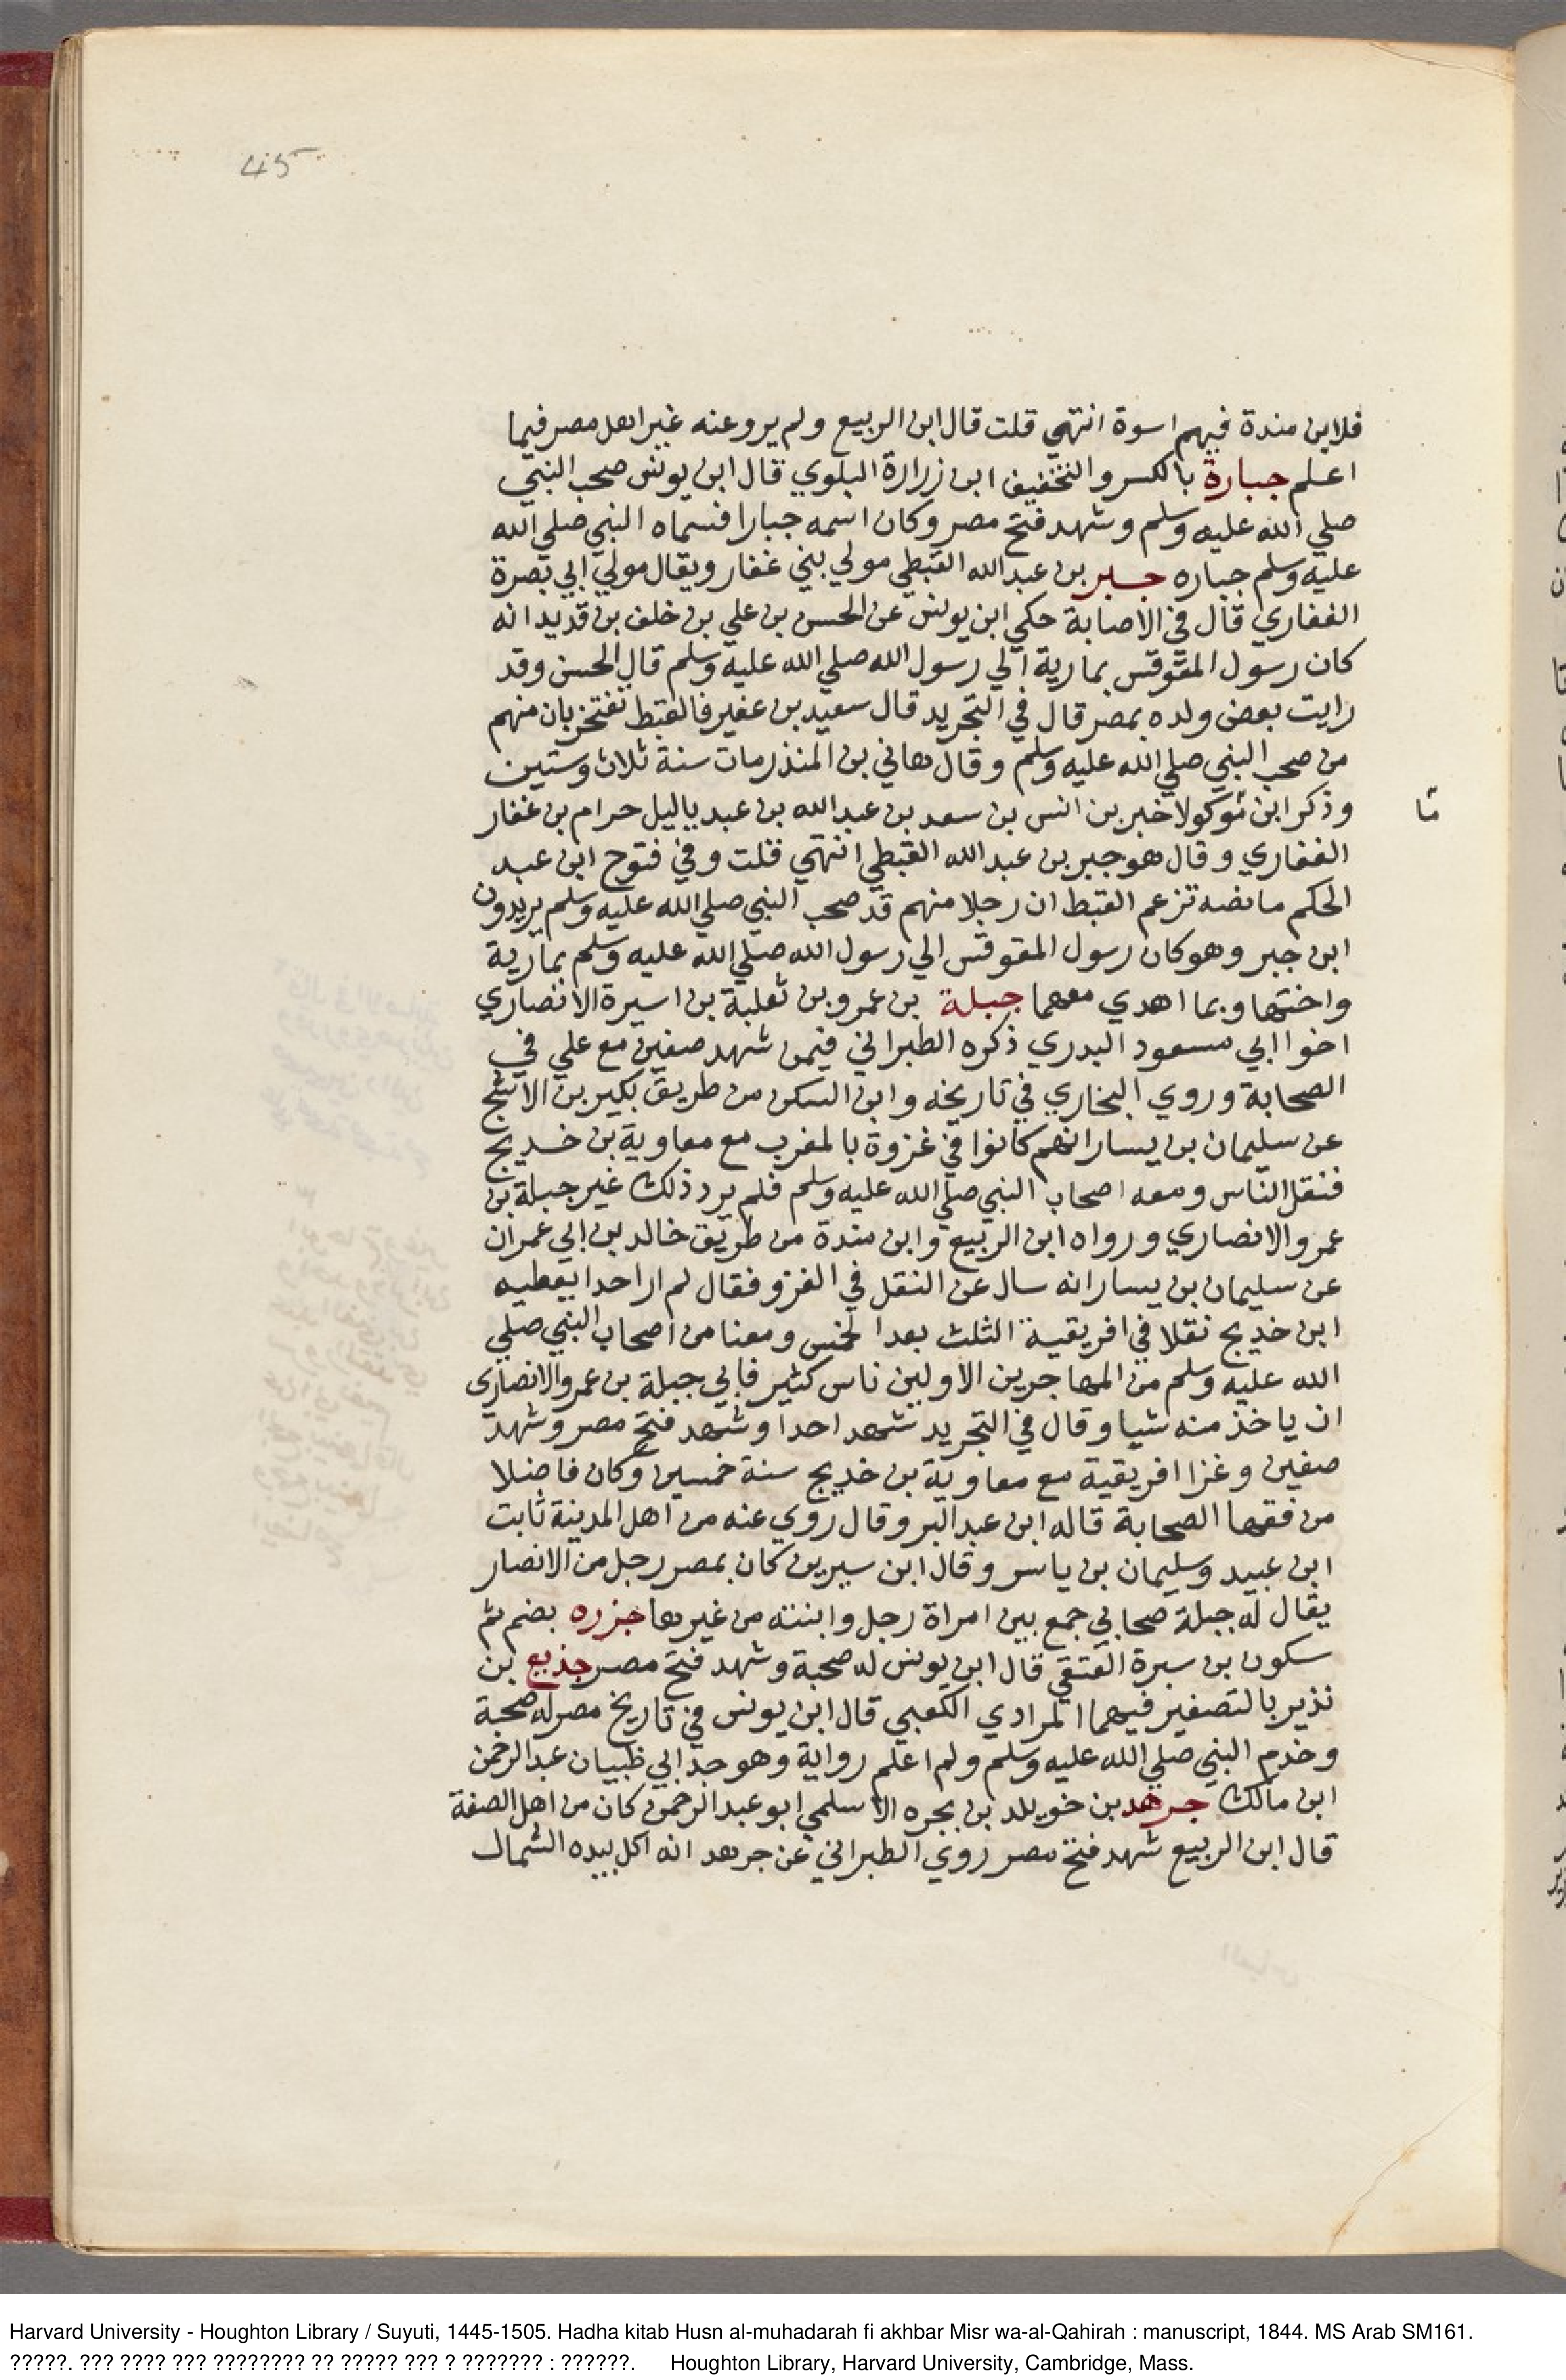 45
فلابن مندة فيهم اسوة انتهي قلت قال ابن الربيع ولم يرو عنه غير اهل مصر فيما
اعلم جبارة بالكسر والتخفيف ابن زرارة البلوي قال ابن يونس صحب النبي
صلي الله عليه وسلم وشهد فتح مصر وكان اسمه جبارا فسماه النبي صلي الله
عليه وسلم جباره جبر بن عبد الله القبطي مولي بني غفار ويقال مولي ابي بصرة
الغفاري قال في الاصابة حكي ابن يونس عن الحسن بن علي بن خلف بن قديد انه
كان رسول المقوقس بمارية الي رسول الله صلي الله عليه وسلم قال الحسن وقد
رايت بعض ولده بمصر قال في التجريد قال سعيد بن عفير فالقبط تفتخر بان منهم
من صحب النبي صلي الله عليه وسلم وقال هاني بن المنذر مات سنة ثلاث وستين
وذكر ابن موكولا خبر بن انس بن سعد بن عبد الله بن عبد ياليل حرام بن غفار
ما
الغفاري وقال هو جبر بن عبد الله القبطي انتهي قلت وفي فتوح ابن عبد
الحكم ما نصه تزعم القبط ان رجلا منهم قد صحب النبي صلي الله عليه وسلم يريدون
ابن جبر وهو كان رسول المقوقس الي رسول الله صلي الله عليه وسلم بمارية
واختها وبما اهدي معهما جبلة بن عمرو بن ثعلبة بن اسيرة الانصاري
اخوا ابي مسعود البدري ذكره الطبراني فيمن شهد صفين مع علي في
الصحابة وروي البخاري في تاريخه وابن السكن من طريق بكير بن الاشج
عن سليمان بن يسار انهم كانوا في غزوة بالمغرب مع معاوية بن خديج
فنقل الناس ومعه اصحاب النبي صلي الله عليه وسلم فلم يرد ذلك غير جبلة بن
عمرو الانصاري ورواه ابن الربيع وابن مندة من طريق خالد بن ابي عمران
عن سليمان بن يسار انه سال عن النقل في الغزو فقال لم ار احدا يعطيه
ابن خديج نقلا في افريقية الثلث بعد الخمس ومعنا من اصحاب النبي صلي
الله عليه وسلم من المهاجرين الاولين ناس كثير فابي جبلة بن عمرو الانصاري
ان ياخذ منه شيا وقال في التجريد شهد احدا وشهد فتح مصر وشهد
صفين وغزا افريقية مع معاوية بن خديج سنة خمسين وكان فاضلا
من فقها الصحابة قاله ابن عبد البر وقال روي عنه من اهل المدينة ثابت
ابن عبيد وسليمان بن ياسر وقال ابن سيرين كان بمصر رجل من الانصار
يقال له جبلة صحابي جمع بين امراة رجل وابنته من غيرها جزره بضم ثم
سكون بن سبرة العتقي قال ابن يونس له صحبة وشهد فتح مصر جذيع بن
نذير بالتصغير فيهما المرادي الكعبي قال ابن يونس في تاريخ مصر له صحبة
وخدم النبي صلي الله عليه وسلم ولم اعلم رواية وهو جد ابي ظبيان عبد الرحمن
ابن مالك جرهد بن خويلد بن بجره الاسلمي ابو عبد الرحمن كان من اهل الصفة
قال ابن الربيع شهد فتح مصر روي الطبراني عن جرهد انه اكل بيده الشمال
Harvard University - Houghton Library / Suyuti, 1445-1505. Hadha kitab Husn al-muhadarah fi akhbar Misr wa-al-Qahirah : manuscript, 1844. MS Arab SM161.
?????. ??? ???? ??? ???????? ?? ????? ??? ? ??????? : ??????. Houghton Library, Harvard University, Cambridge, Mass.